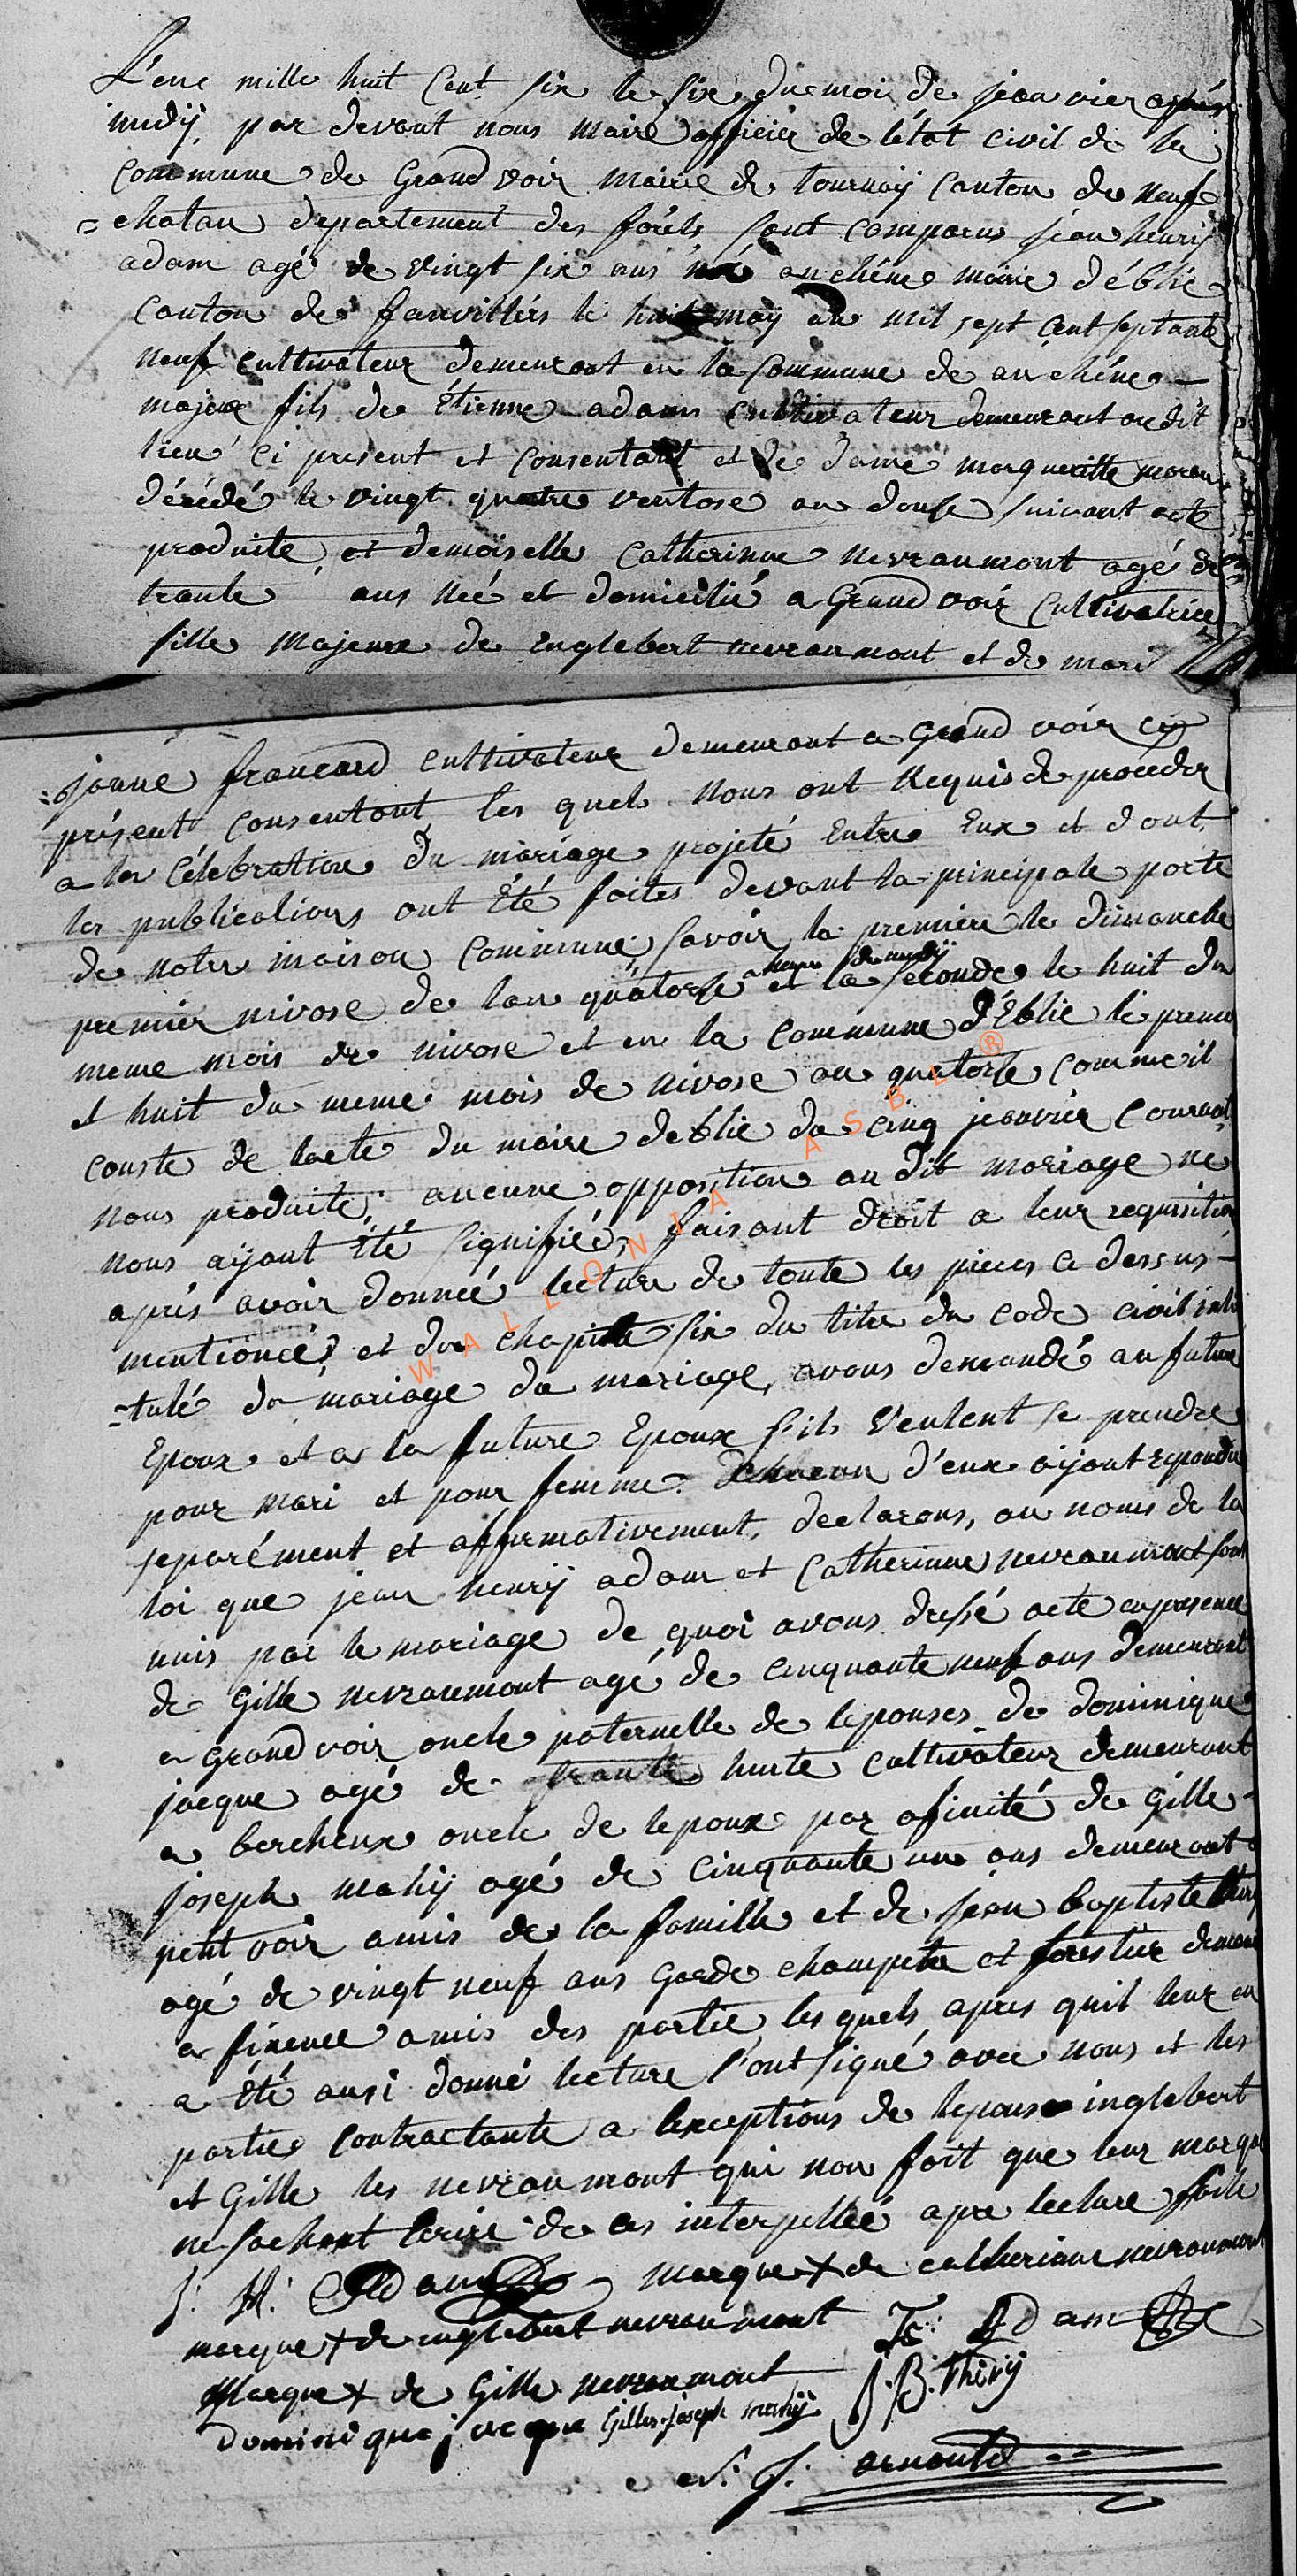 L'enc mille huit Cent six le six du moi de jeanvier après
midÿ, par devant nous maire officier de létat civil de la
commune de Grandvoir mairie de tournaÿ Canton de neuf
=chatau departement des forêts sont comparus jean henrÿ
adam agé de vingt six ans né auchêne mairie d'éblie
Canton de fauvillérs le huit maÿ de mil sept cent septante
neuf cultivateur demeurant en la Commune de auchéne —
majeur fils de Étienne adam cultivateur demeurant audit
lieu ci present et consentant et de dame margueritte moreau
décédé le vingt quatre ventose an douse suivant acte
produite, et demoiselle catherinne nevraumont agé de
trante ans née et domicilié a Grandvoir Cultivatrice
fille majeure de englebert nevraumont et de mari
=ojanne francard cultivateur demeurant a Grand voir cy
présent consentant les quels nous ont Requis de proceder
a la Célébration du mariage projeté Entre Eux et dont
les publications ont Été faites devant la principale porte
de notre maison commune savoir la premiere le dimanche
premier nivose de lan quatorse et la seconde le huit du
meme mois de nivose et en la commune d'Eblie le premier
et huit du meme mois de nivose an quatorse comme il
conste de lacte du maire deblie du cinq jeanvier courant
nous produite, aucune opposition au dit mariage ne
nous aÿant Été signifiéé, faisant droit a leur requisition
aprés avoir donneé lecture de toute les pieces ce dessus —
mentionéé, et du chapitre six du titre du code civil inti
=tulé du mariage du mariage, avons demandé au future
Epoux et a la future Epoux s'ils Veulent se prendre
pour mari et pour femme. chacun d'eux aÿant repondu
separément et affirmativement, declarons, au noms de la
loi que jean henrÿ adam et Catherinne nevraumont sont
unis par le mariage de quoi avons dressé acte en presence
de Gille nevraumont agé de cinquante neuf ans demeurant
a Grandvoir oncle paternelle de lepouses de dominique
jacque agé de trante huite cultivateur demeurant
a bercheux oncle de lepoux par afinité de Gille
joseph mahÿ agé de cinquante un ans demeurant a
petit voir amis de la famille et de jean baptiste thirÿ
agé de vingt neuf ans garde champetre et forestier demeurant
a finence amis des partie, les quels apres quil leur en
a été ausi donné lecture l'ont signé avec nous et les
parties Contractante a lexceptions de lepouse inglebert
et Gille les nevraumont qui non fait que leur marque
ne sachant Ecrire de ces interpelléé apre lecture faite
j: H: Adam marque + de catherinne nevraumont
marque + de inglebert nevraumont Et: Adam
Marque + de Gille nevraumont J:B: Thirÿ
dominique jacque Gilles-joseph mahÿ
arnould
WALLONIA ASBL ®